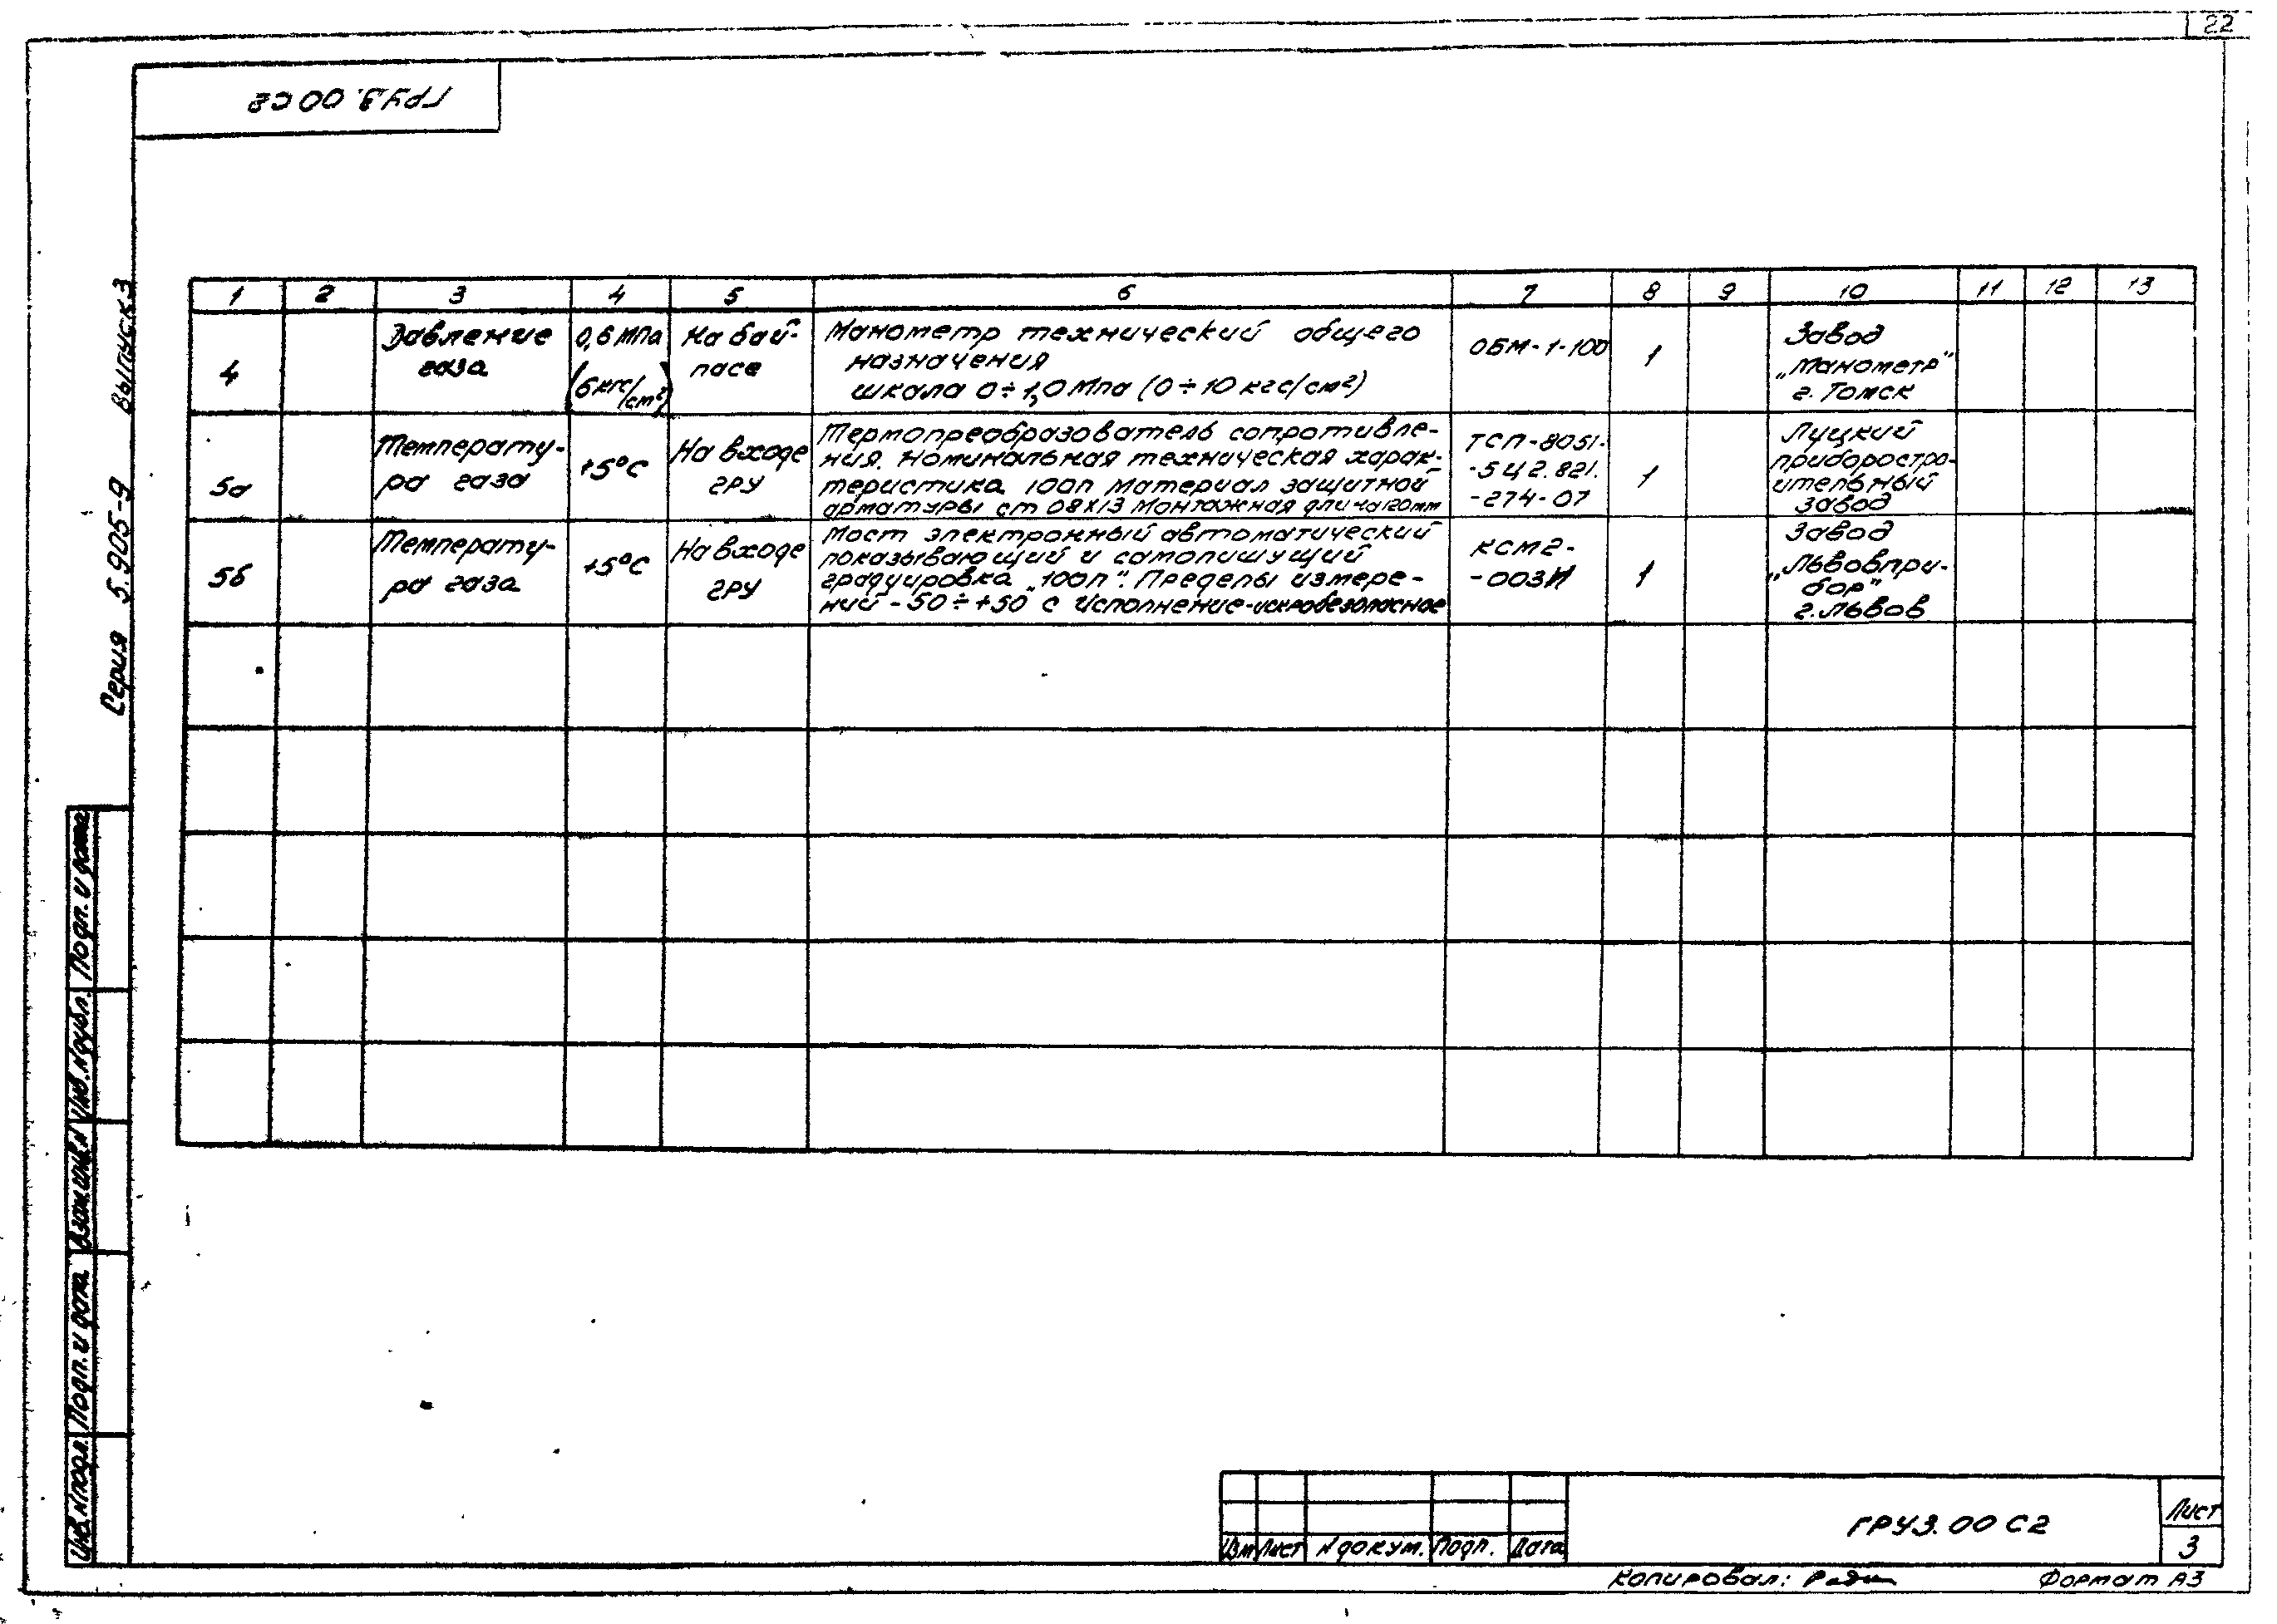 22
ГРУ3.00 С2
Серия 5.905-9 Выпуск 3
1 2 3 4 5 6 7 8 9 10 11 12 13
4
Давление
газа
0,6 МПа
(6 кгс/см²)
На бай-
пасе
Манометр технический общего
назначения
шкала 0÷1,0 Мпа (0÷10 кгс/см²)
ОБМ-1-100
1
Завод
„Манометр"
г. Томск
5а
Температу-
ра газа
+5°С
На входе
ГРУ
Термопреобразователь сопротивле-
ния. Номинальная техническая харак-
теристика 100п Материал защитной
арматуры ст 08Х13 Монтажная длина 120мм
ТСП-8051-
-5Ц2.821.
-274-07
1
Луцкий
приборостро-
ительный
завод
5б
Температу-
ра газа
+5°С
На входе
ГРУ
Мост электронный автоматический
показывающий и самопишущий
градуировка „100п". Пределы измере-
ний -50÷+50°С Исполнение-искробезопасное
КСМ2-
-003И
1
Завод
„Львовпри-
бор"
г. Львов
Подп. и дата
Инв. N дубл.
Взам. инв. N
Подп. и дата
Инв. N подл.
Изм Лист N докум. Подп. Дата
ГРУ3.00 С2
Лист
3
Копировал:
Формат А3